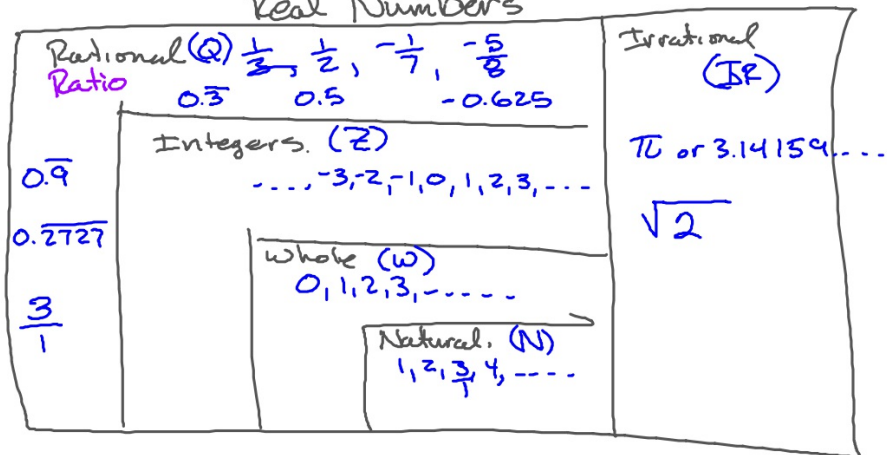 Real Numbers
Rational (Q) 1/3, 1/2, -1/7, -5/8
Ratio
0.3̅ 0.5 -0.625
0.9̅
0.2̅7̅2̅7̅
3/1
Integers. (Z)
...., -3, -2, -1, 0, 1, 2, 3, ---
Whole (W)
0, 1, 2, 3, -----
Natural. (N)
1, 2, 3/1, 4, ----
Irrational
(IR)
π or 3.14159....
√2